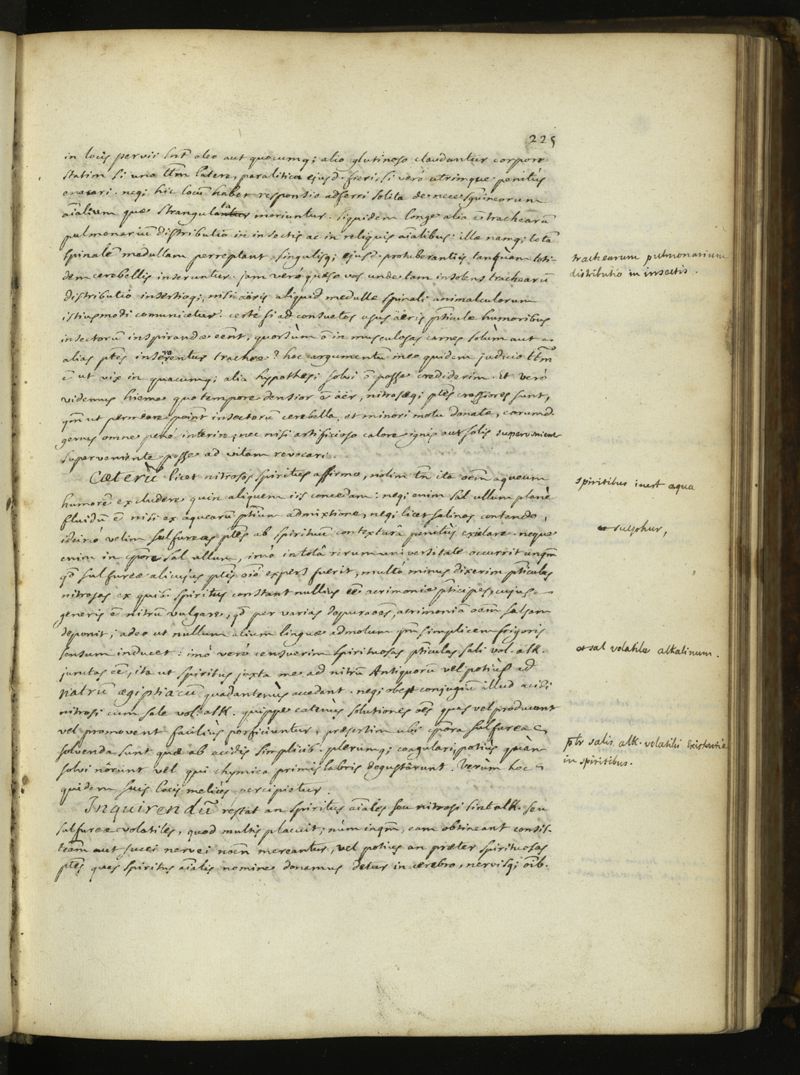 225
in locis pervii sint oleo aut quocumq; alio glutinoso claudantur corpore
statim si una ttm latere, paralitica ejusd. fieri, si verò utrimque penitùs
neq; hic locum habet responsio adferri solita de nece sanguineorum
aialium quæ strangulata moriuntur. siquidem longe alia e trachearū
pulmonariū distributio in insectis ac in reliquis aialibus: illæ namq; totā
spinalē medullam perreptant, singulisq; ejusd. protuberantiis tanquam toti-
dem cerebellis inseruntur. jam verò quæso vos unde tam insolens trachearū
distributio insertioq;, nisi aëris aliquid medullæ spinali animalculorum
istiusmodi comunicetur. certè si ad consuetos usus aëris pticulæ humoribus
insectorū inspirandæ eēnt, quorsùm ō in musculosas carnes solùm aut
alias ptes insererentur tracheæ? hoc argumentū meo quidem judicio ttm
ē ut vix in quacumq; alia hypothesi solvi ō posse crediderim. Et verò
videmus hieme quo tempore densior ē aër, nitrosæq; ptes crassiores sunt,
qm ut permeare possint insectorū cerebella, et minori motu donatæ, eorumd.
genus omne penè interire; nec nisi artificioso calore ignis aut solis superveniente
superveniente posse ad vitam revocari.
Cæterū licet nitrosos spiritus affirmo, nolim tn ita oem aqueum
humorē excludere quin aliquem iis concedam: neq; enim sal ullum planè
fluidū ē nisi ex aquearū ptium admixtione, neq; licet salinos contendo,
idcirò velim sulfureas ptes ab spirituū contexturâ penitùs exulare. neque
enim in cpore sal ullum, imò in totâ rerum universitate occurrit unqm
qd sulfureæ alicujus ptis oiō expers fuerit, multò minus dixerim pticulas
nitrosas ex quibs spiritus constant nullius eē acrimoniæ pticipes, cujus
generis ē nitrū vulgare, qd per varias despuraōes, acrimonia oem salsam
deponit, adeo ut nullum alium linguæ admotum qm simplicem frigoris
sensum inducet: imò verò censuerim spirituosas pticulas sali vol. alk.
junctas eē, ita ut spiritus juxta me ad nitrū Antiquorū vel potiùs ad
natrū ægiptiacū quadantenùs accedant. neq; obest conjugiū illud acidi
nitrosi cum sale vol. alk. quippe eatenus solutiones oēs quas vel producunt
vel promovent faciliùs perficiuntur, præsertim ubi cpora sulfurea
solvenda sunt quæ ab acidis simplicib. plerumq; coagulari potiùs quàm
solvi nōrunt vel qui chymica primis labris degustârunt. Verùm hoc
quidem suis locis meliùs percipietur.
Inquirendū restat an spiritus aiales seu nitrosi sint alk. seu
sulfureæ volatiles, quod multis placuit, nùm inqm, eam obtineant consis-
tiam aut succi nervei noēn mereantur, vel potius an præter spirituosas
ptes quas spiritus aialis nomine donemus detur in cerebro, nervisq; oib.
trachearum pulmonarium
distributio in insectis.
spiritibus inest aqua
sulphur,
et sal volatile alkalinum.
ptr salis alk. volatilis existentia
in spiritibus.